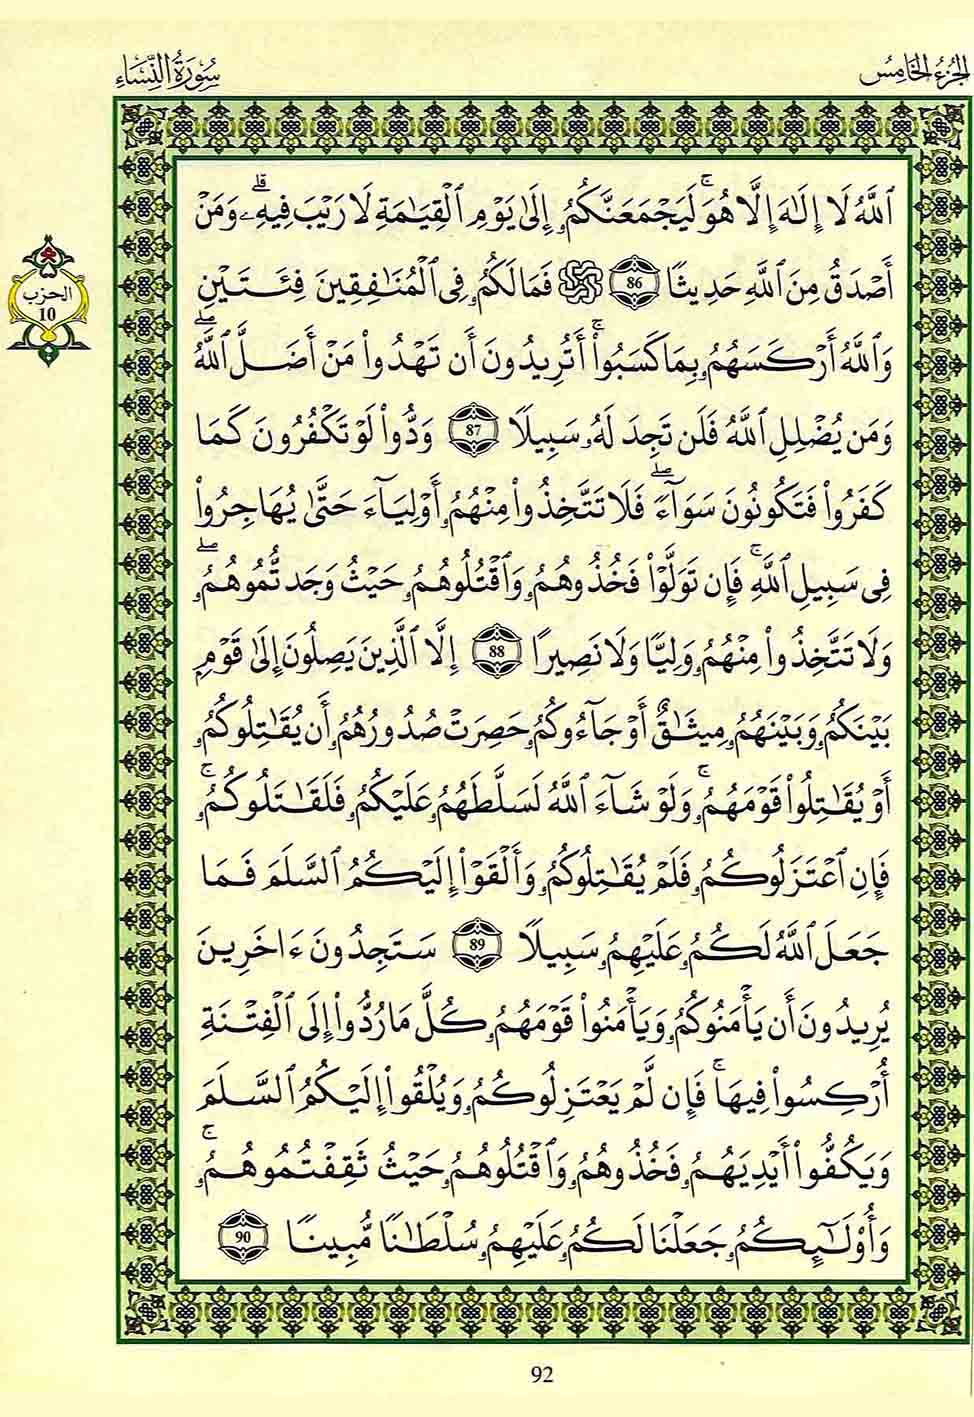 الجُزْءُ الخَامِسُ
سُورَةُ النِّسَاءِ
اَ۬للَّهُ لَا إِلَٰهَ إِلَّا هُوَۚ لَيَجْمَعَنَّكُمُۥ إِلَىٰ يَوْمِ اِ۬لْقِيَٰمَةِ لَا رَيْبَ فِيهِۦۗ وَمَنْ
أَصْدَقُ مِنَ اَ۬للَّهِ حَدِيثًا 86 ۞ فَمَا لَكُمُۥ فِي اِ۬لْمُنَٰفِقِينَ فِئَتَيْنِ
وَاَللَّهُ أَرْكَسَهُمُۥ بِمَا كَسَبُوا۟ۚ أَتُرِيدُونَ أَن تَهْدُوا۟ مَنْ أَضَلَّ اَ۬للَّهُۖ
وَمَن يُضْلِلِ اِ۬للَّهُ فَلَن تَجِدَ لَهُۥ سَبِيلًا 87 وَدُّوا۟ لَوْ تَكْفُرُونَ كَمَا
كَفَرُوا۟ فَتَكُونُونَ سَوَآءًۖ فَلَا تَتَّخِذُوا۟ مِنْهُمُۥ أَوْلِيَآءَ حَتَّىٰ يُهَاجِرُوا۟
فِي سَبِيلِ اِ۬للَّهِۚ فَإِن تَوَلَّوْا۟ فَخُذُوهُمُۥ وَاَقْتُلُوهُمُۥ حَيْثُ وَجَدتُّمُوهُمُۥۖ
وَلَا تَتَّخِذُوا۟ مِنْهُمُۥ وَلِيًّا وَلَا نَصِيرًا 88 إِلَّا اَ۬لَّذِينَ يَصِلُونَ إِلَىٰ قَوْمٍ
بَيْنَكُمُۥ وَبَيْنَهُمُۥ مِيثَٰقٌ أَوْ جَآءُوكُمُۥ حَصِرَتْ صُدُورُهُمُۥ أَن يُقَٰتِلُوكُمُۥ
أَوْ يُقَٰتِلُوا۟ قَوْمَهُمُۥۚ وَلَوْ شَآءَ اَ۬للَّهُ لَسَلَّطَهُمُۥ عَلَيْكُمُۥ فَلَقَٰتَلُوكُمُۥۚ
فَإِنِ اِ۪عْتَزَلُوكُمُۥ فَلَمْ يُقَٰتِلُوكُمُۥ وَأَلْقَوْا۟ إِلَيْكُمُ اُ۬لسَّلَمَ فَمَا
جَعَلَ اَ۬للَّهُ لَكُمُۥ عَلَيْهِمُۥ سَبِيلًا 89 سَتَجِدُونَ ءَاخَرِينَ
يُرِيدُونَ أَن يَأْمَنُوكُمُۥ وَيَأْمَنُوا۟ قَوْمَهُمُۥ كُلَّ مَا رُدُّوا۟ إِلَى اَ۬لْفِتْنَةِ
أُرْكِسُوا۟ فِيهَاۚ فَإِن لَّمْ يَعْتَزِلُوكُمُۥ وَيُلْقُوا۟ إِلَيْكُمُ اُ۬لسَّلَمَ
وَيَكُفُّوا۟ أَيْدِيَهُمُۥ فَخُذُوهُمُۥ وَاَقْتُلُوهُمُۥ حَيْثُ ثَقِفْتُمُوهُمُۥۚ
وَأُو۟لَٰٓئِكُمُۥ جَعَلْنَا لَكُمُۥ عَلَيْهِمُۥ سُلْطَٰنًا مُّبِينًا 90
الحزب
10
92